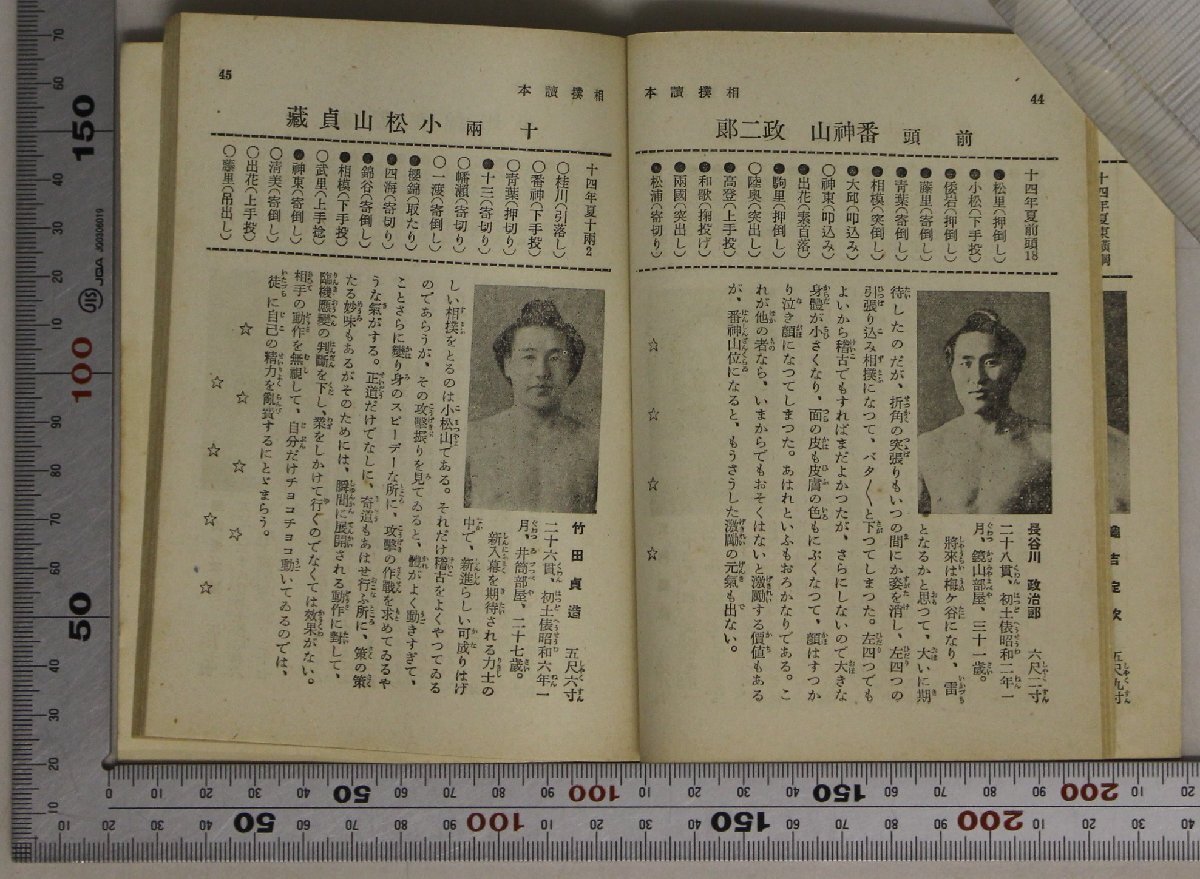 44
相撲讀本
前頭 番神山 政二郎
十四年夏前頭18
●松里(押倒し)
●小松(下手投)
●倭岩(押倒し)
●藤里(寄倒し)
●青葉(寄倒し)
●相模(突倒し)
●大邱(叩込み)
○神東(叩込み)
●出花(素首落)
●駒里(押倒し)
○陸奥(突出し)
●高登(上手投)
●和歌(掬投げ)
●兩國(突出し)
●松浦(寄切り)
長谷川 政治郎 六尺二寸
二十八貫、初土俵昭和二年一
月、鏡山部屋、三十一歳。
將來は梅ケ谷になり、雷
となるかと思つて、大いに期
待したのだが、折角の突張りもいつの間にか姿を消し、左四つの
引張り込み相撲になつて、バタ〱と下つてしまつた。左四つでも
よいから稽古でもすればまだよかつたが、さらにしないので大きな
身體が小さくなり、面の皮も皮膚の色もにぶくなつて、顔はすつか
り泣き顔になつてしまつた。あはれといふもおろかなりである。こ
れが他の者なら、いまからでもおそくはないと激勵する價値もある
が、番神山位になると、もうさうした激勵の元氣も出ない。
☆ ☆ ☆ ☆
45
相撲讀本
十兩 小松山貞藏
十四年夏十兩2
○桂川(引落し)
○番神(下手投)
○青葉(押切り)
●十三(寄切り)
○幡瀬(寄切り)
○一渡(寄倒し)
●櫻錦(取たり)
●四海(寄切り)
●錦谷(寄倒し)
●相模(下手投)
○武里(上手捻)
●神東(寄倒し)
○清美(寄倒し)
○出花(上手投)
○藤里(吊出し)
竹田貞造 五尺六寸
二十六貫、初土俵昭和六年一
月、井筒部屋、二十七歳。
新入幕を期待される力士の
中で、新進らしい可成りはげ
しい相撲をとるのは小松山である。それだけ稽古をよくやつてゐる
のであらうが、その攻撃振りを見てゐると、體がよく動きすぎて、
ことさらに變り身のスピーデーな所に、攻撃の作戰を求めてゐるや
うな氣がする。正道だけでなしに、奇道もあはせ行ふ所に、策の策
たる妙味もあるがそのためには、瞬間に展開される動作に對して、
臨機應變の判斷を下し、業をしかけて行くのでなくては效果がない。
相手の動作を無視して、自分だけチョコチョコ動いてゐるのでは、
徒に自己の精力を亂費するにとゞまらう。
☆ ☆ ☆ ☆ ☆ ☆ ☆ ☆
JIS JQ0208019 JQA
50
100
150
50
100
150
200
50
100
150
200